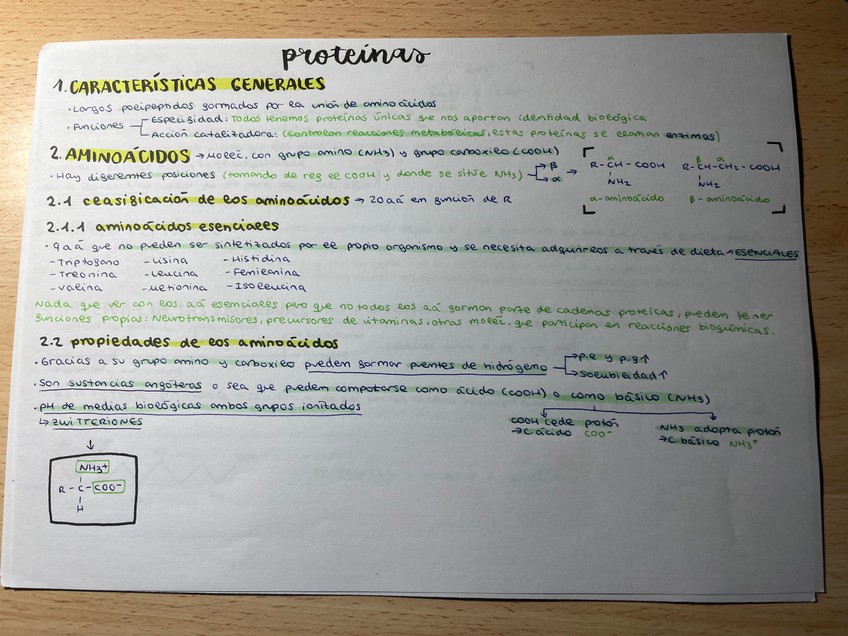 proteínas
1. CARACTERÍSTICAS GENERALES
· Largos polipeptidos formados por la unión de aminoácidos
· Funciones
Especifidad: Todos tenemos proteínas únicas que nos aportan identidad biológica
Acción catalizadora: (Controlan reacciones metabólicas, estas proteínas se llaman enzimas)
2. AMINOÁCIDOS → Moléc. con grupo amino (NH3) y grupo carboxilo (COOH)
· Hay diferentes posiciones (tomando de ref el COOH y donde se sitúe NH2) → β → α →
R-CH-COOH
α
NH2
α-aminoácido
R-CH-CH2-COOH
β α
NH2
β-aminoácido
2.1 clasificación de los aminoácidos → 20 aá en función de R
2.1.1 aminoácidos esenciales
· 9 aá que no pueden ser sintetizados por el propio organismo y se necesita adquirirlos a través de dieta → ESENCIALES
- Triptófano - Lisina - Histidina
- Treonina - Leucina - Fenilanina
- Valina - Metionina - Isoleucina
Nada que ver con los aá esenciales pero que no todos los aá forman parte de cadenas proteicas, pueden tener
funciones propias: Neurotransmisores, precursores de vitaminas, otras moléc. que participan en reacciones bioquímicas.
2.2 propiedades de los aminoácidos
· Gracias a su grupo amino y carboxilo pueden formar puentes de hidrógeno → p.e y p.f ↑
→ solubilidad ↑
· Son sustancias anfóteras o sea que pueden comportarse como ácido (COOH) o como básico (NH3)
COOH cede protón
→ C ácido COO-
NH3 adopta protón
→ C básico NH3+
· pH de medias biológicas ambos grupos ionizados
↳ ZWITTERIONES
NH3+
R - C - COO-
H